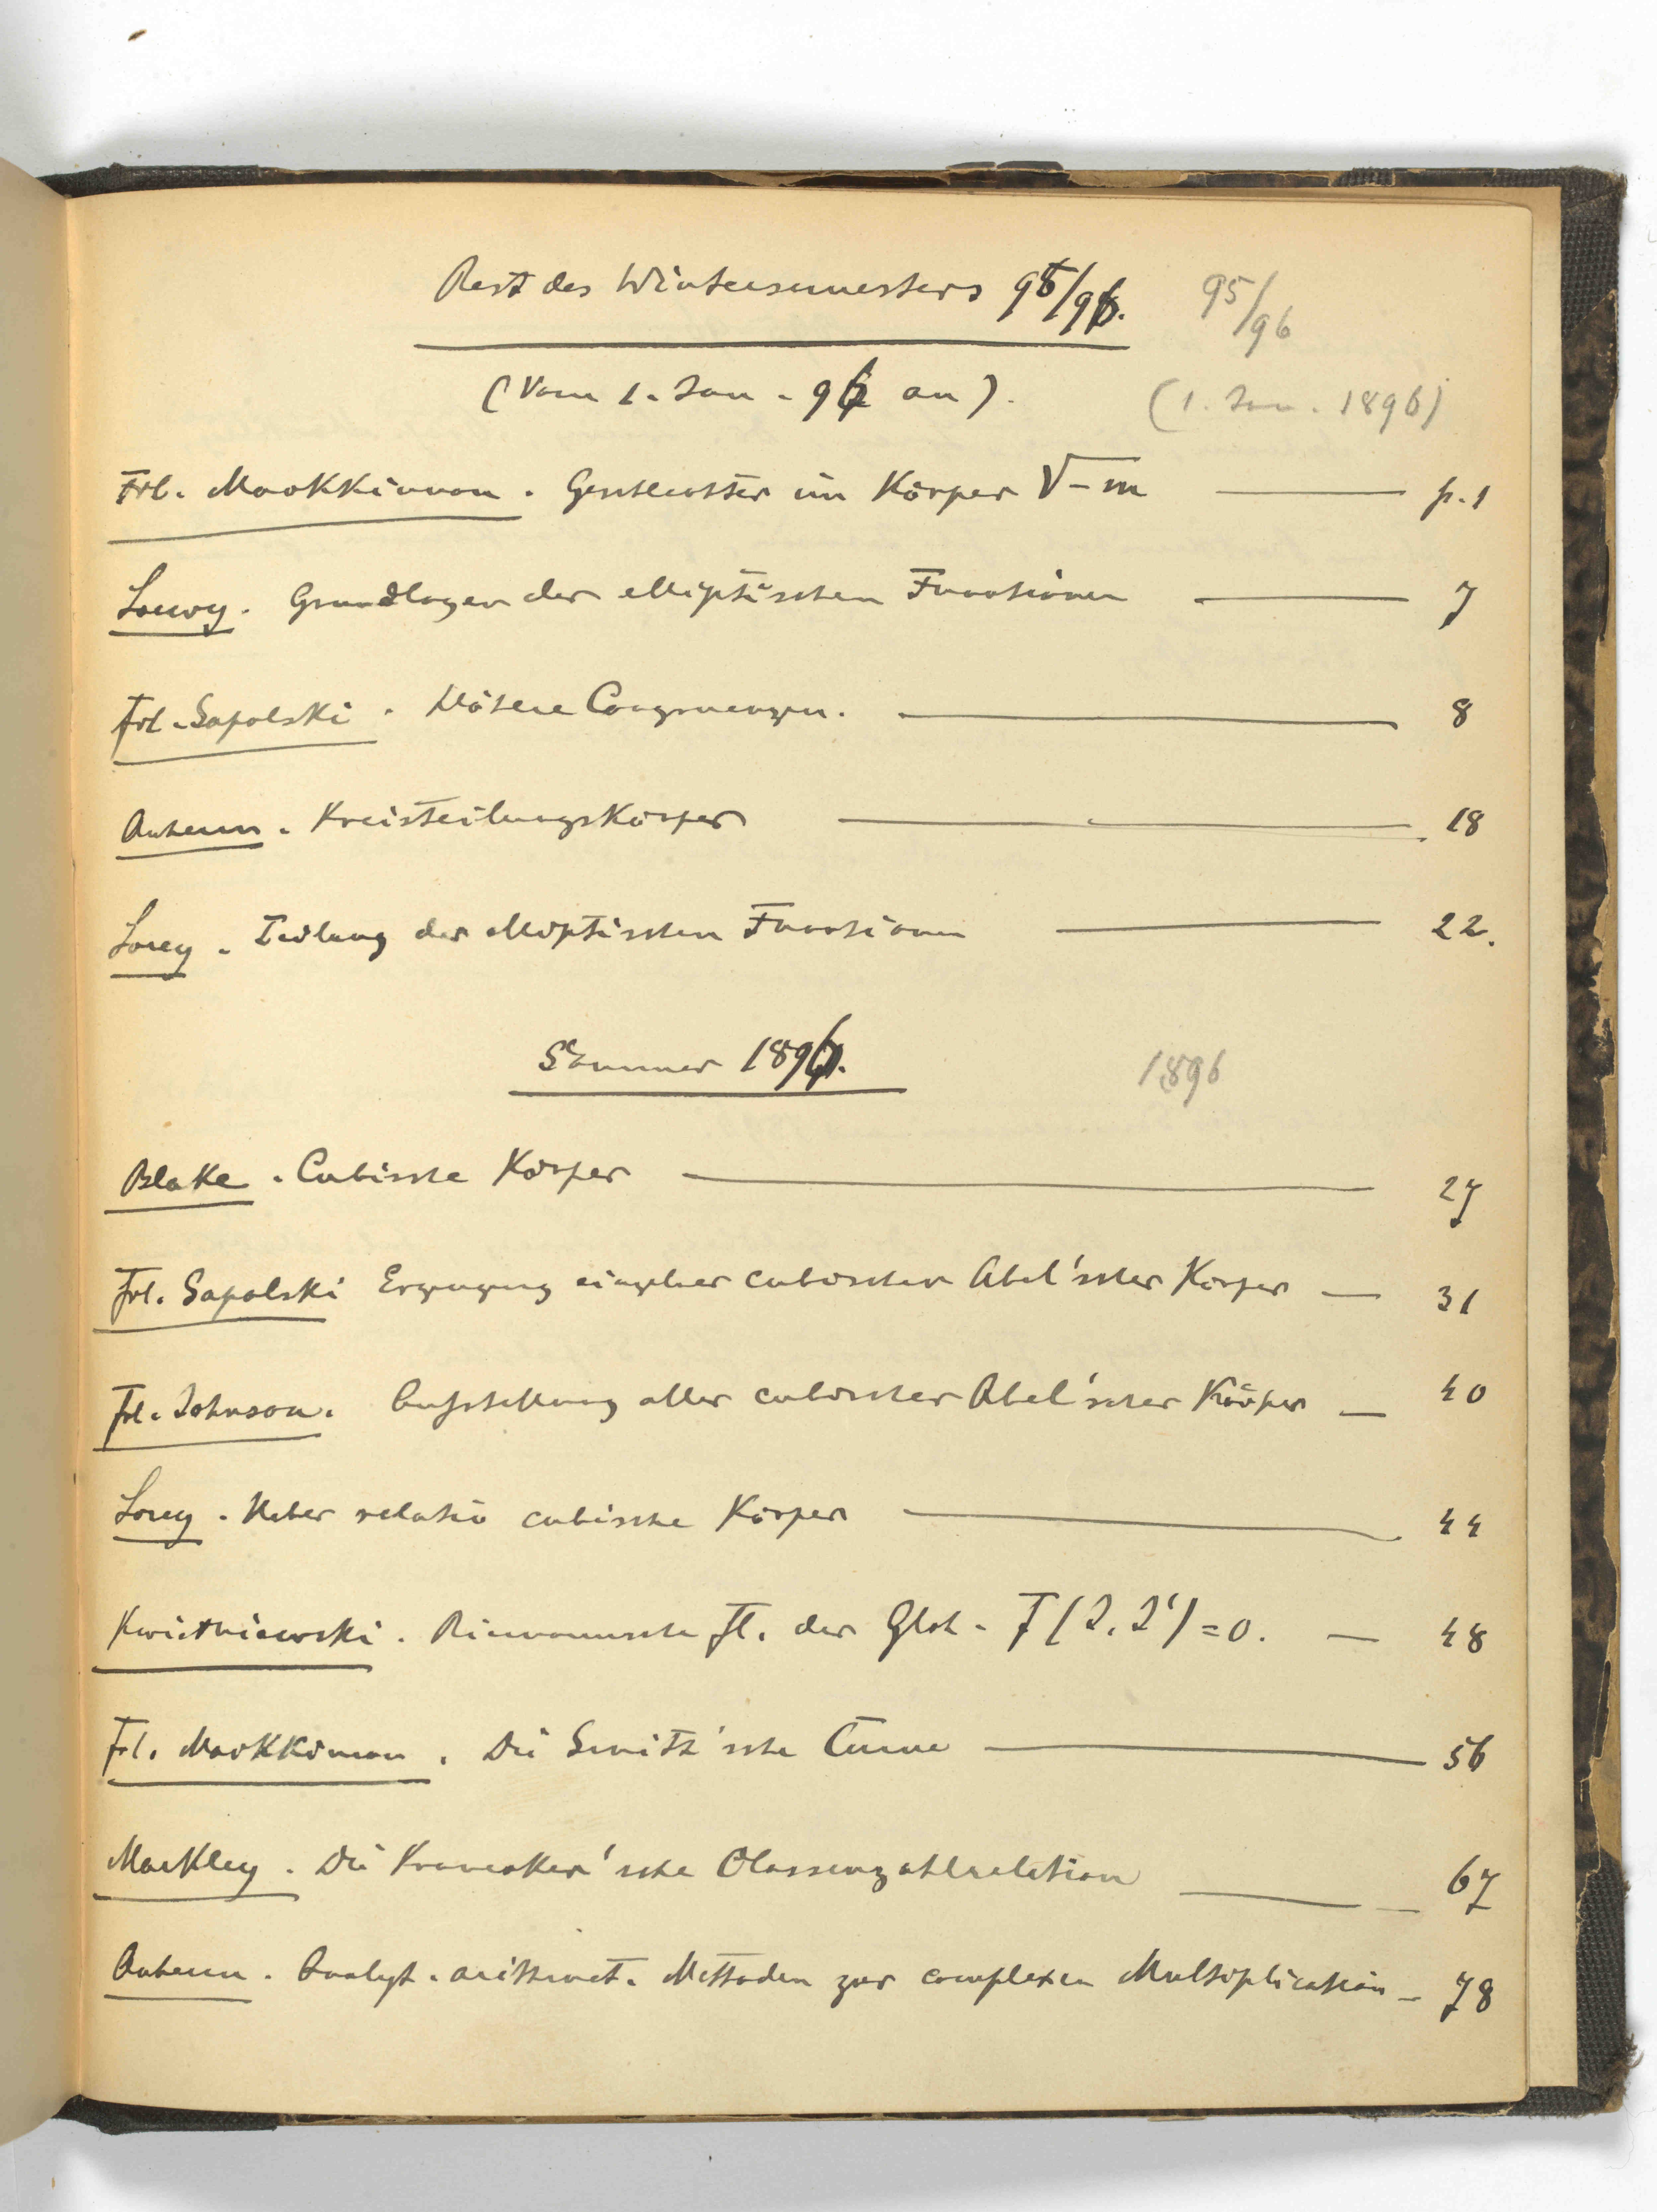 Rest des Wintersemesters 95/96. 95/96
(Vom 1. Jan. 96 an). (1. Jan. 1896)
Frl. MacKKinnon. Geschlechter im Körper √-m — p. 1
Loewy. Grundlagen der elliptischen Functionen — 7
Frl. Sapolski. Höhere Congruenzen. — 8
Anhenn. Kreisteilungskörper — 18
Lorey. Teilung der elliptischen Functionen — 22.
Sommer 1896. 1896
Blake. Cubische Körper — 27
Frl. Sapolski Erzeugung einzelner cubischer Abel'scher Körper — 31
Frl. Johnson. Aufstellung aller cubischer Abel'scher Körper — 40
Lorey. Ueber relativ cubische Körper — 44
Kwietniewski. Riemannsche Fl. der Glch. F(J, J') = 0. — 48
Frl. MacKKinnon. Die Smith'sche Curve — 56
Mackley. Die Kronecker'sche Classenzahlrelation — 67
Analyt. arithmet. Methoden zur complexen Multiplication — 78